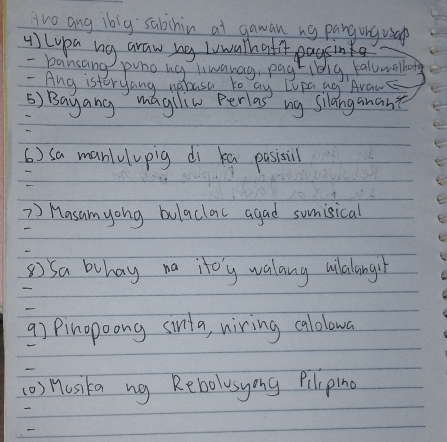 Ano ang ibig sabihin at gawan ng pangungusap
4) Lupa ng araw ng luwalhati't pagsinta
- bansang puno ng liwanag, pag ibig, kaluwalhati
- Ang istoryang nabasa ko ay Lupa ng Araw
5) Bayang magiliw Perlas ng Silanganan?
-
-
6) Sa manlulupig di ka pasisiil
-
-
7) Masamyong bulaclac agad sumisical
-
-
8) Sa buhay na ito'y walang wilalangit
-
-
9) Pinopoong sinta, niring calolowa
-
-
10) Musika ng Rebolusyong Pilipino
-
-